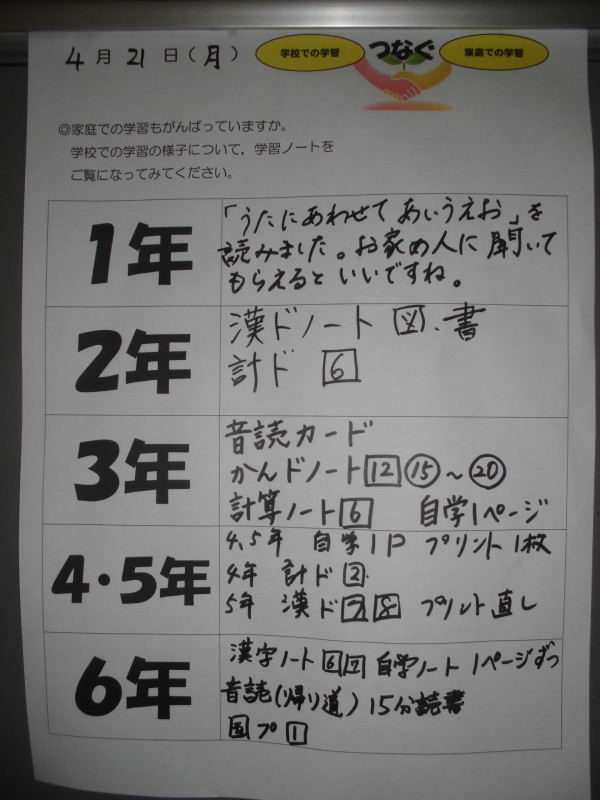 4月21日(月)
学校での学習 つなぐ 家庭での学習
◎家庭での学習もがんばっていますか。
学校での学習の様子について，学習ノートを
ご覧になってみてください。
1年
「うたにあわせて あいうえお」を
読みました。お家の人に聞いて
もらえるといいですね。
2年
漢ドノート 図、書
計ド 6
3年
音読カード
かんドノート 12 ⑮～⑳
計算ノート 6 自学1ページ
4・5年
4,5年 自学1P プリント1枚
4年 計ド 2
5年 漢ド 7 8 プリント直し
6年
漢字ノート 6 7 自学ノート 1ページずつ
音読(帰り道) 15分読書
プ 1